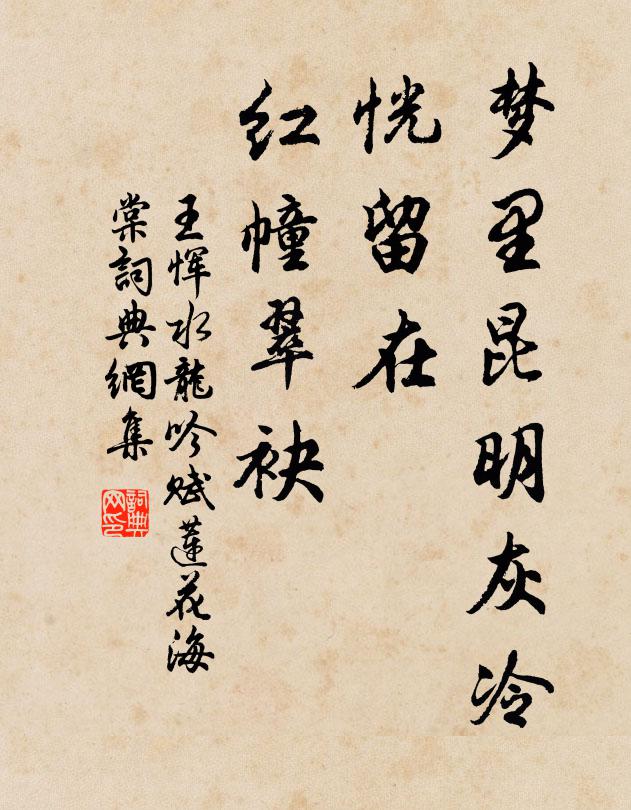 梦里昆明灰冷
恍留在
红幢翠袂
王恽水龍吟赋蓮花海
棠詞典網集
詞典网印